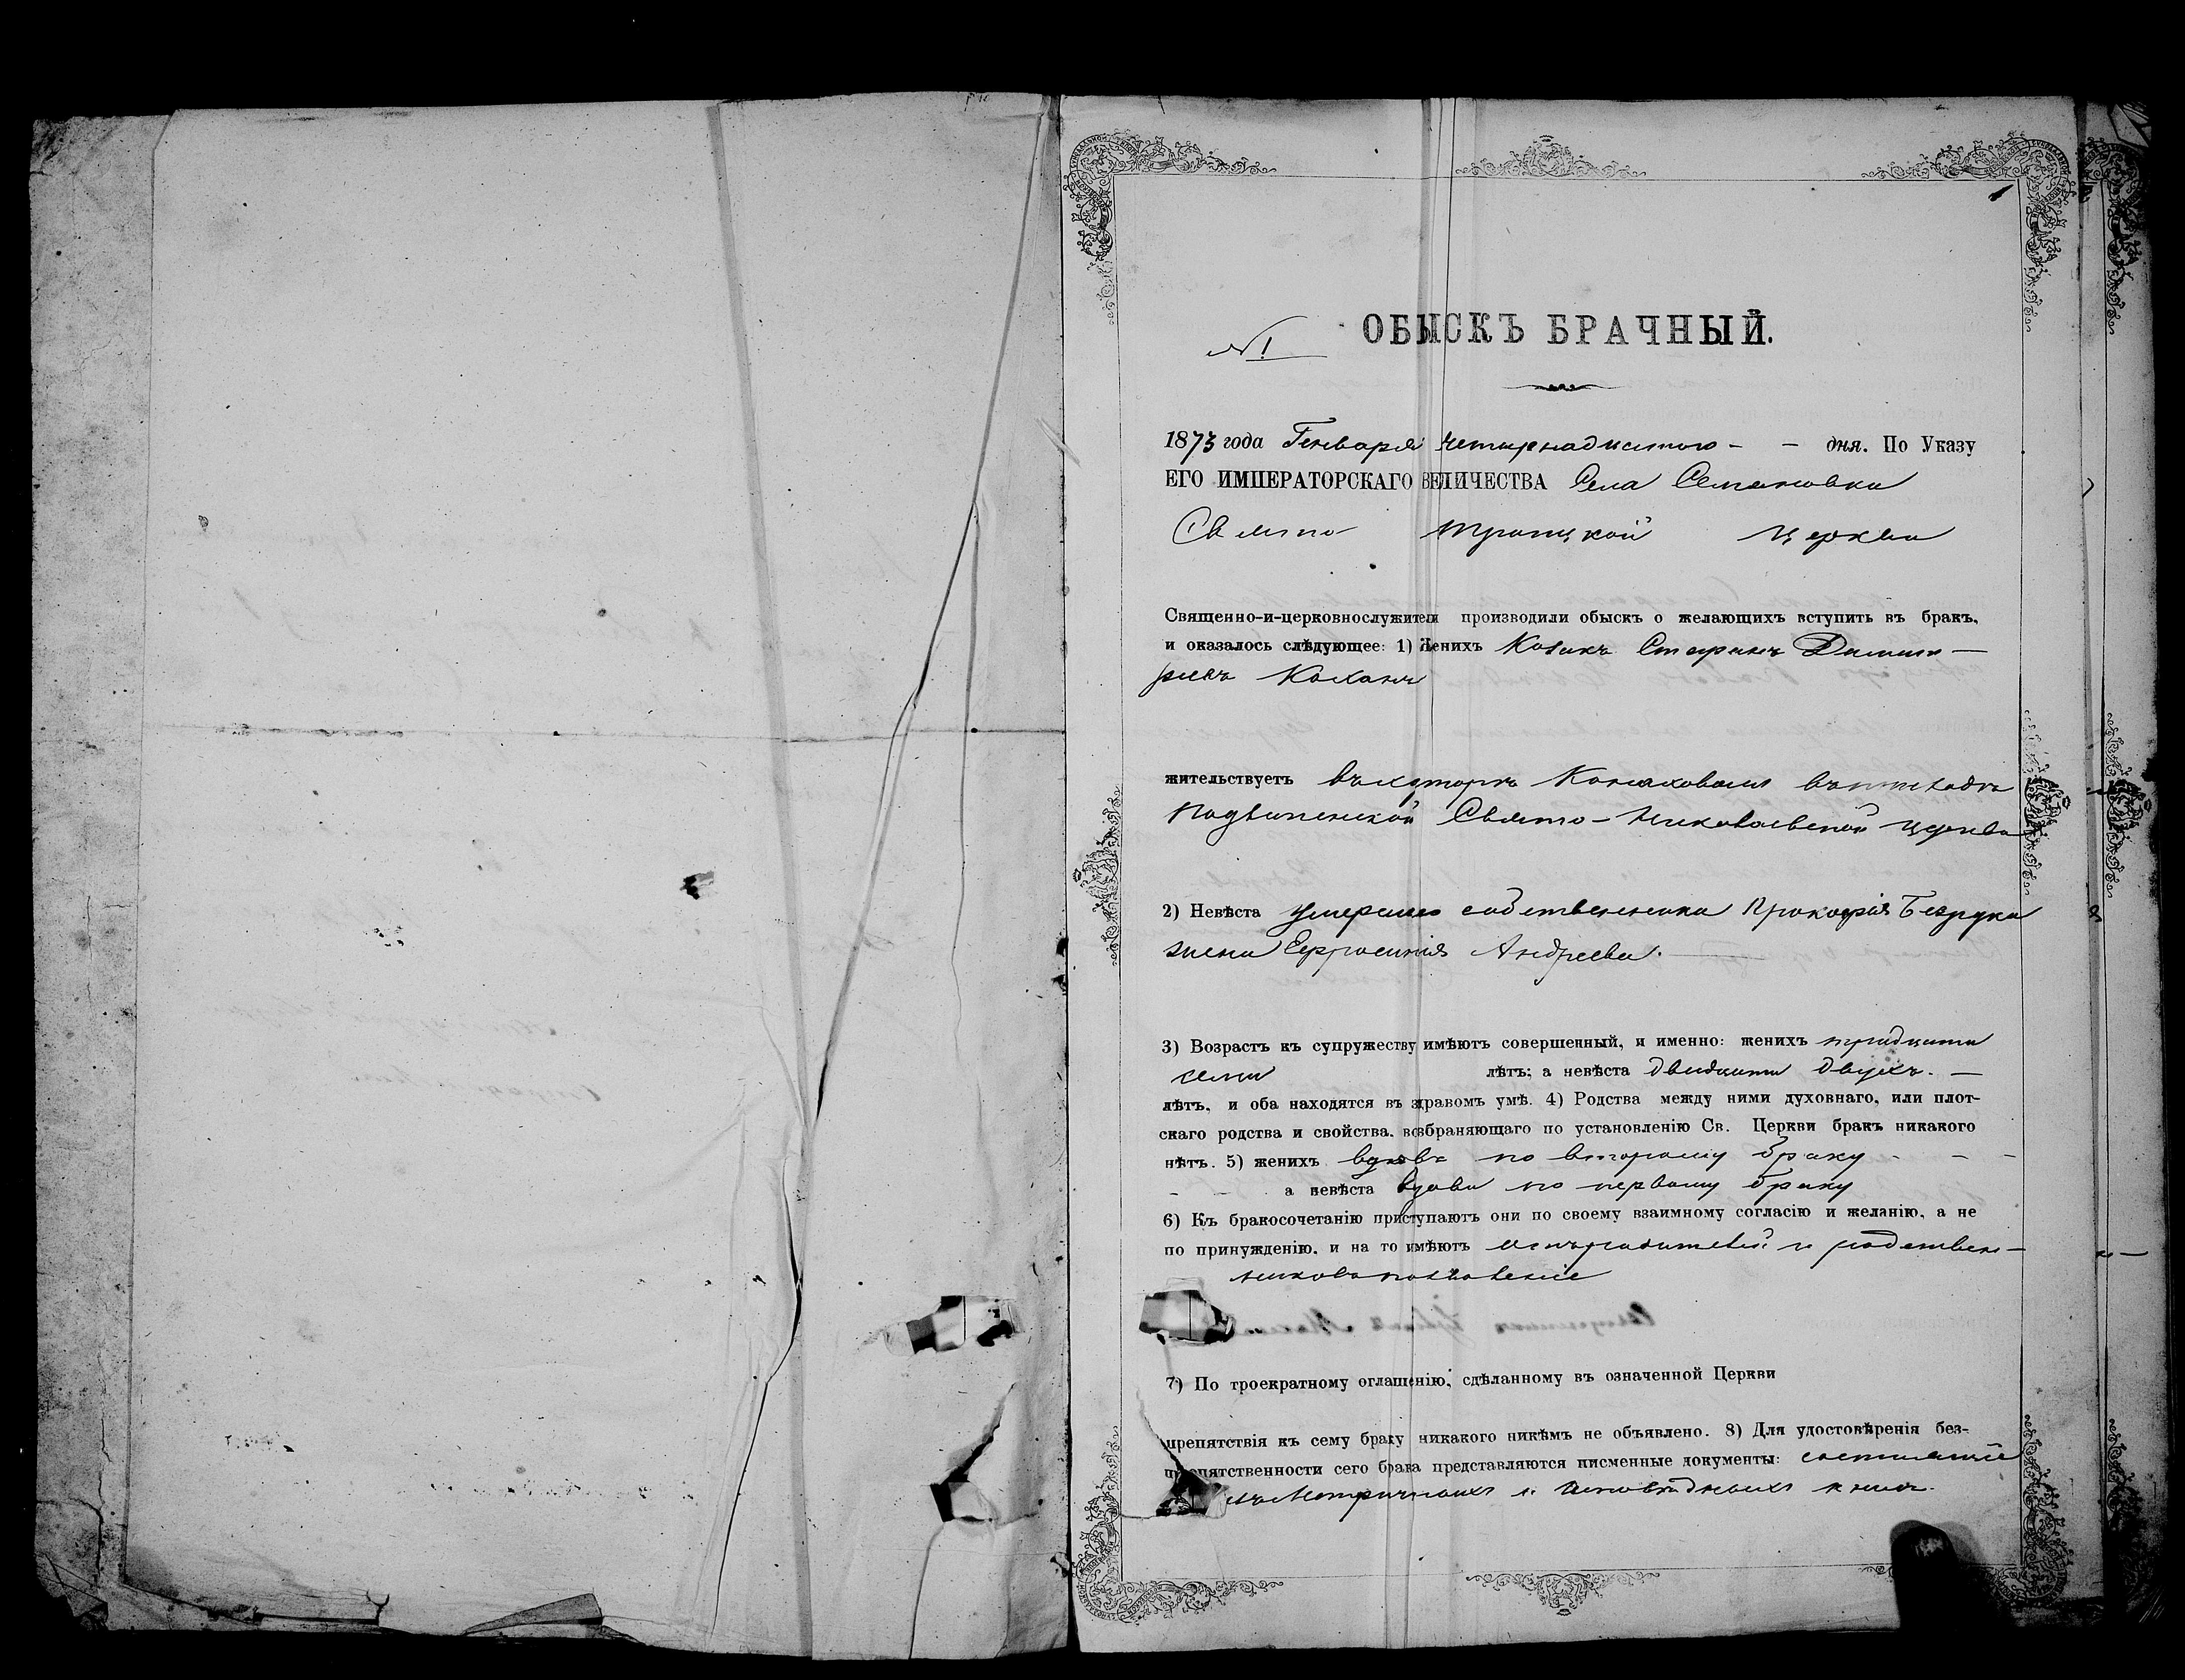 ОБЫСКЪ БРАЧНЫЙ.
№ 1
1873 года Генваря четырнадцатого - - дня. По Указу
ЕГО ИМПЕРАТОРСКАГО ВЕЛИЧЕСТВА Села Семеновки
Свято Троицкой Церкви
Священно-и-церковнослужители производили обыскъ о желающихъ вступить въ бракъ,
и оказалось слѣдующее: 1) Женихъ Козакъ Стефанъ Димит-
ріевъ Коханъ
жительствуетъ въ хуторѣ въ приходѣ
Свято-Николаевской церкви
2) Невѣста умершего собственника Прокофія Безрука
жена Ефросинія Андреева.
3) Возрастъ къ супружеству имѣютъ совершенный, и именно: женихъ тридцати
семи лѣтъ; а невѣста двадцати двухъ. —
лѣтъ, и оба находятся въ здравомъ умѣ. 4) Родства между ними духовнаго, или плот-
скаго родства и свойства, возбраняющаго по установленію Св. Церкви бракъ никакого
нѣтъ. 5) женихъ вдовъ по второму браку - - -
- - а невѣста вдова по первому браку
6) Къ бракосочетанію приступаютъ они по своему взаимному согласію и желанію, а не
по принужденію, и на то имѣютъ отъ родителей и родствен-
никовъ позволеніе
7) По троекратному оглашенію, сдѣланному въ означенной Церкви
препятствія къ сему браку никакого никѣмъ не объявлено. 8) Для удостовѣренія без-
препятственности сего брака представляются писменные документы:
Метричныхъ и Исповѣдныхъ книгъ.